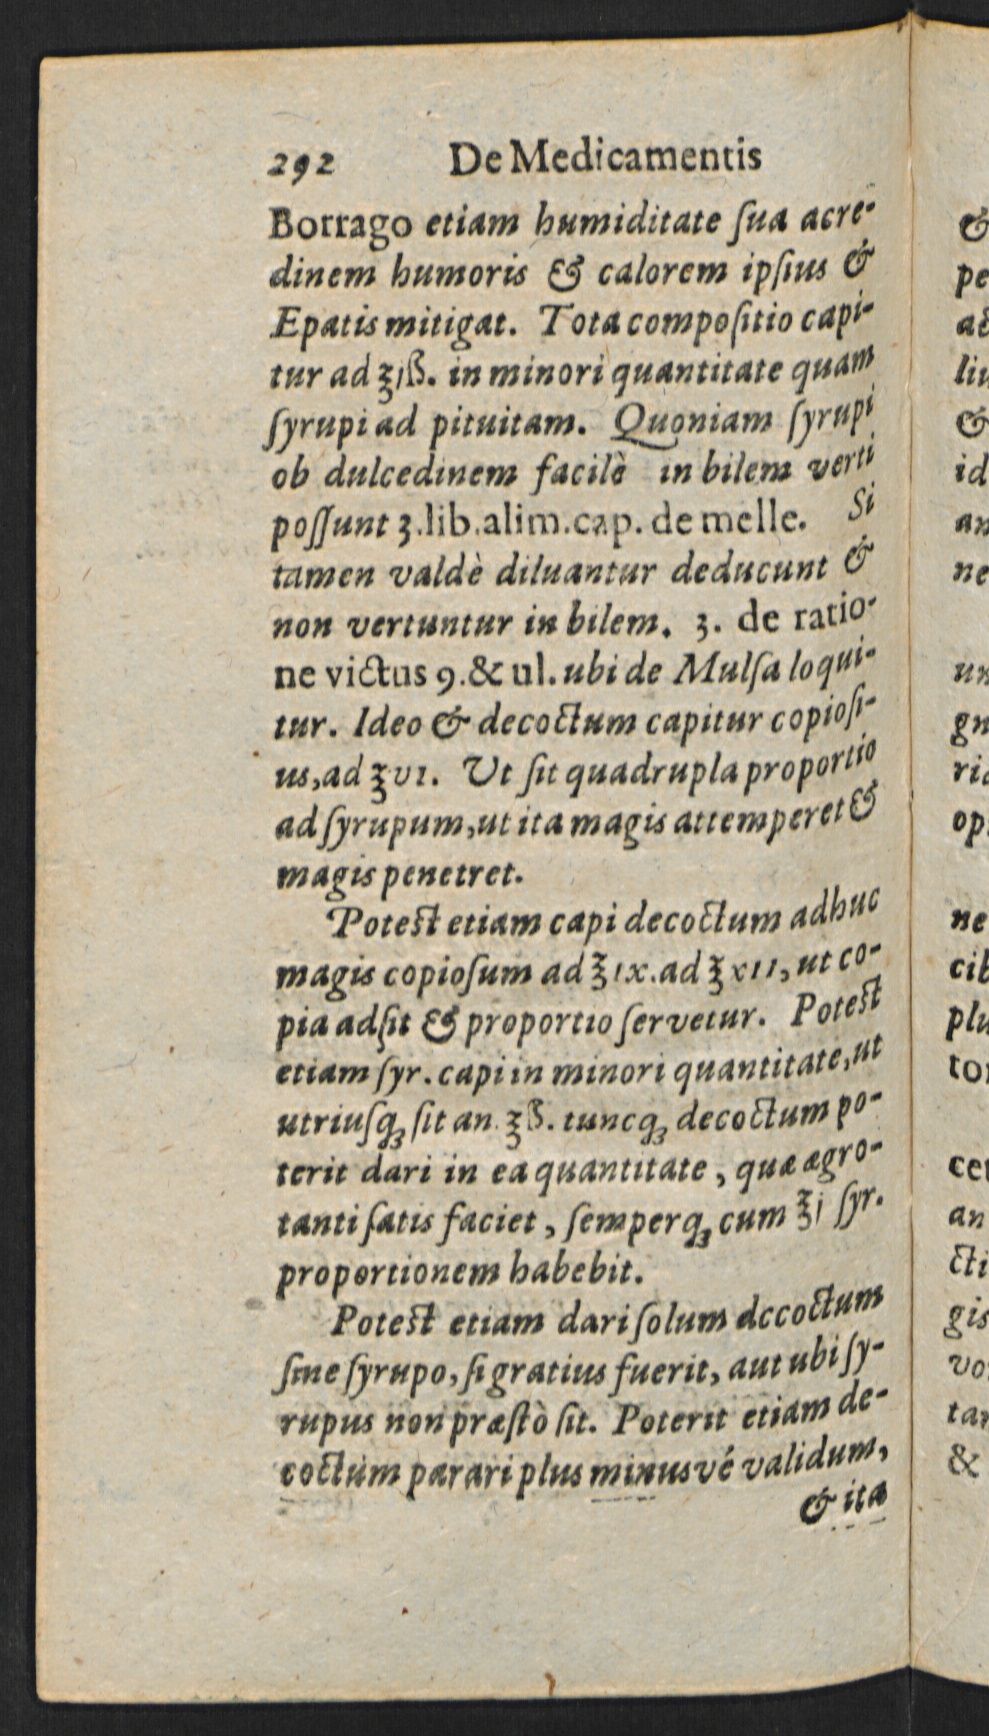 292 De Medicamentis
Borrago etiam humiditate ſua acre-
dinem humoris & calorem ipſius &
Epatis mitigat. Tota compoſitio capi-
tur ad ℥iß. in minori quantitate quam
ſyrupi ad pituitam. Quoniam ſyrupi
ob dulcedinem facilè in bilem verti
poſſunt 3.lib.alim.cap. de melle. Si
tamen valdè diluantur deducunt &
non vertuntur in bilem. 3. de ratio-
ne victus 9.& ul. ubi de Mulſa loqui-
tur. Ideo & decoctum capitur copioſi-
us,ad ℥vi. Ut ſit quadrupla proportio
ad ſyrupum,ut ita magis attemperet &
magis penetret.
Poteſt etiam capi decoctum adhuc
magis copioſum ad ℥ix.ad ℥xii, ut co-
pia adſit & proportio ſervetur. Poteſt
etiam ſyr. capi in minori quantitate,ut
utriuſq; ſit an. ℥ß. tuncq; decoctum po-
terit dari in ea quantitate, quæ ægro-
tanti ſatis faciet, ſemperq; cum ℥i ſyr.
proportionem habebit.
Poteſt etiam dari ſolum dccoctum
ſine ſyrupo, ſi gratius fuerit, aut ubi ſy-
rupus non præſtò ſit. Poterit etiam de-
coctum parari plus minusvé validum,
& ita
&
pe
liu
&
id
an
ne
un
gn
ria
op
ne
cib
plu
tor
cet
an
cti
gis
vo
tar
&